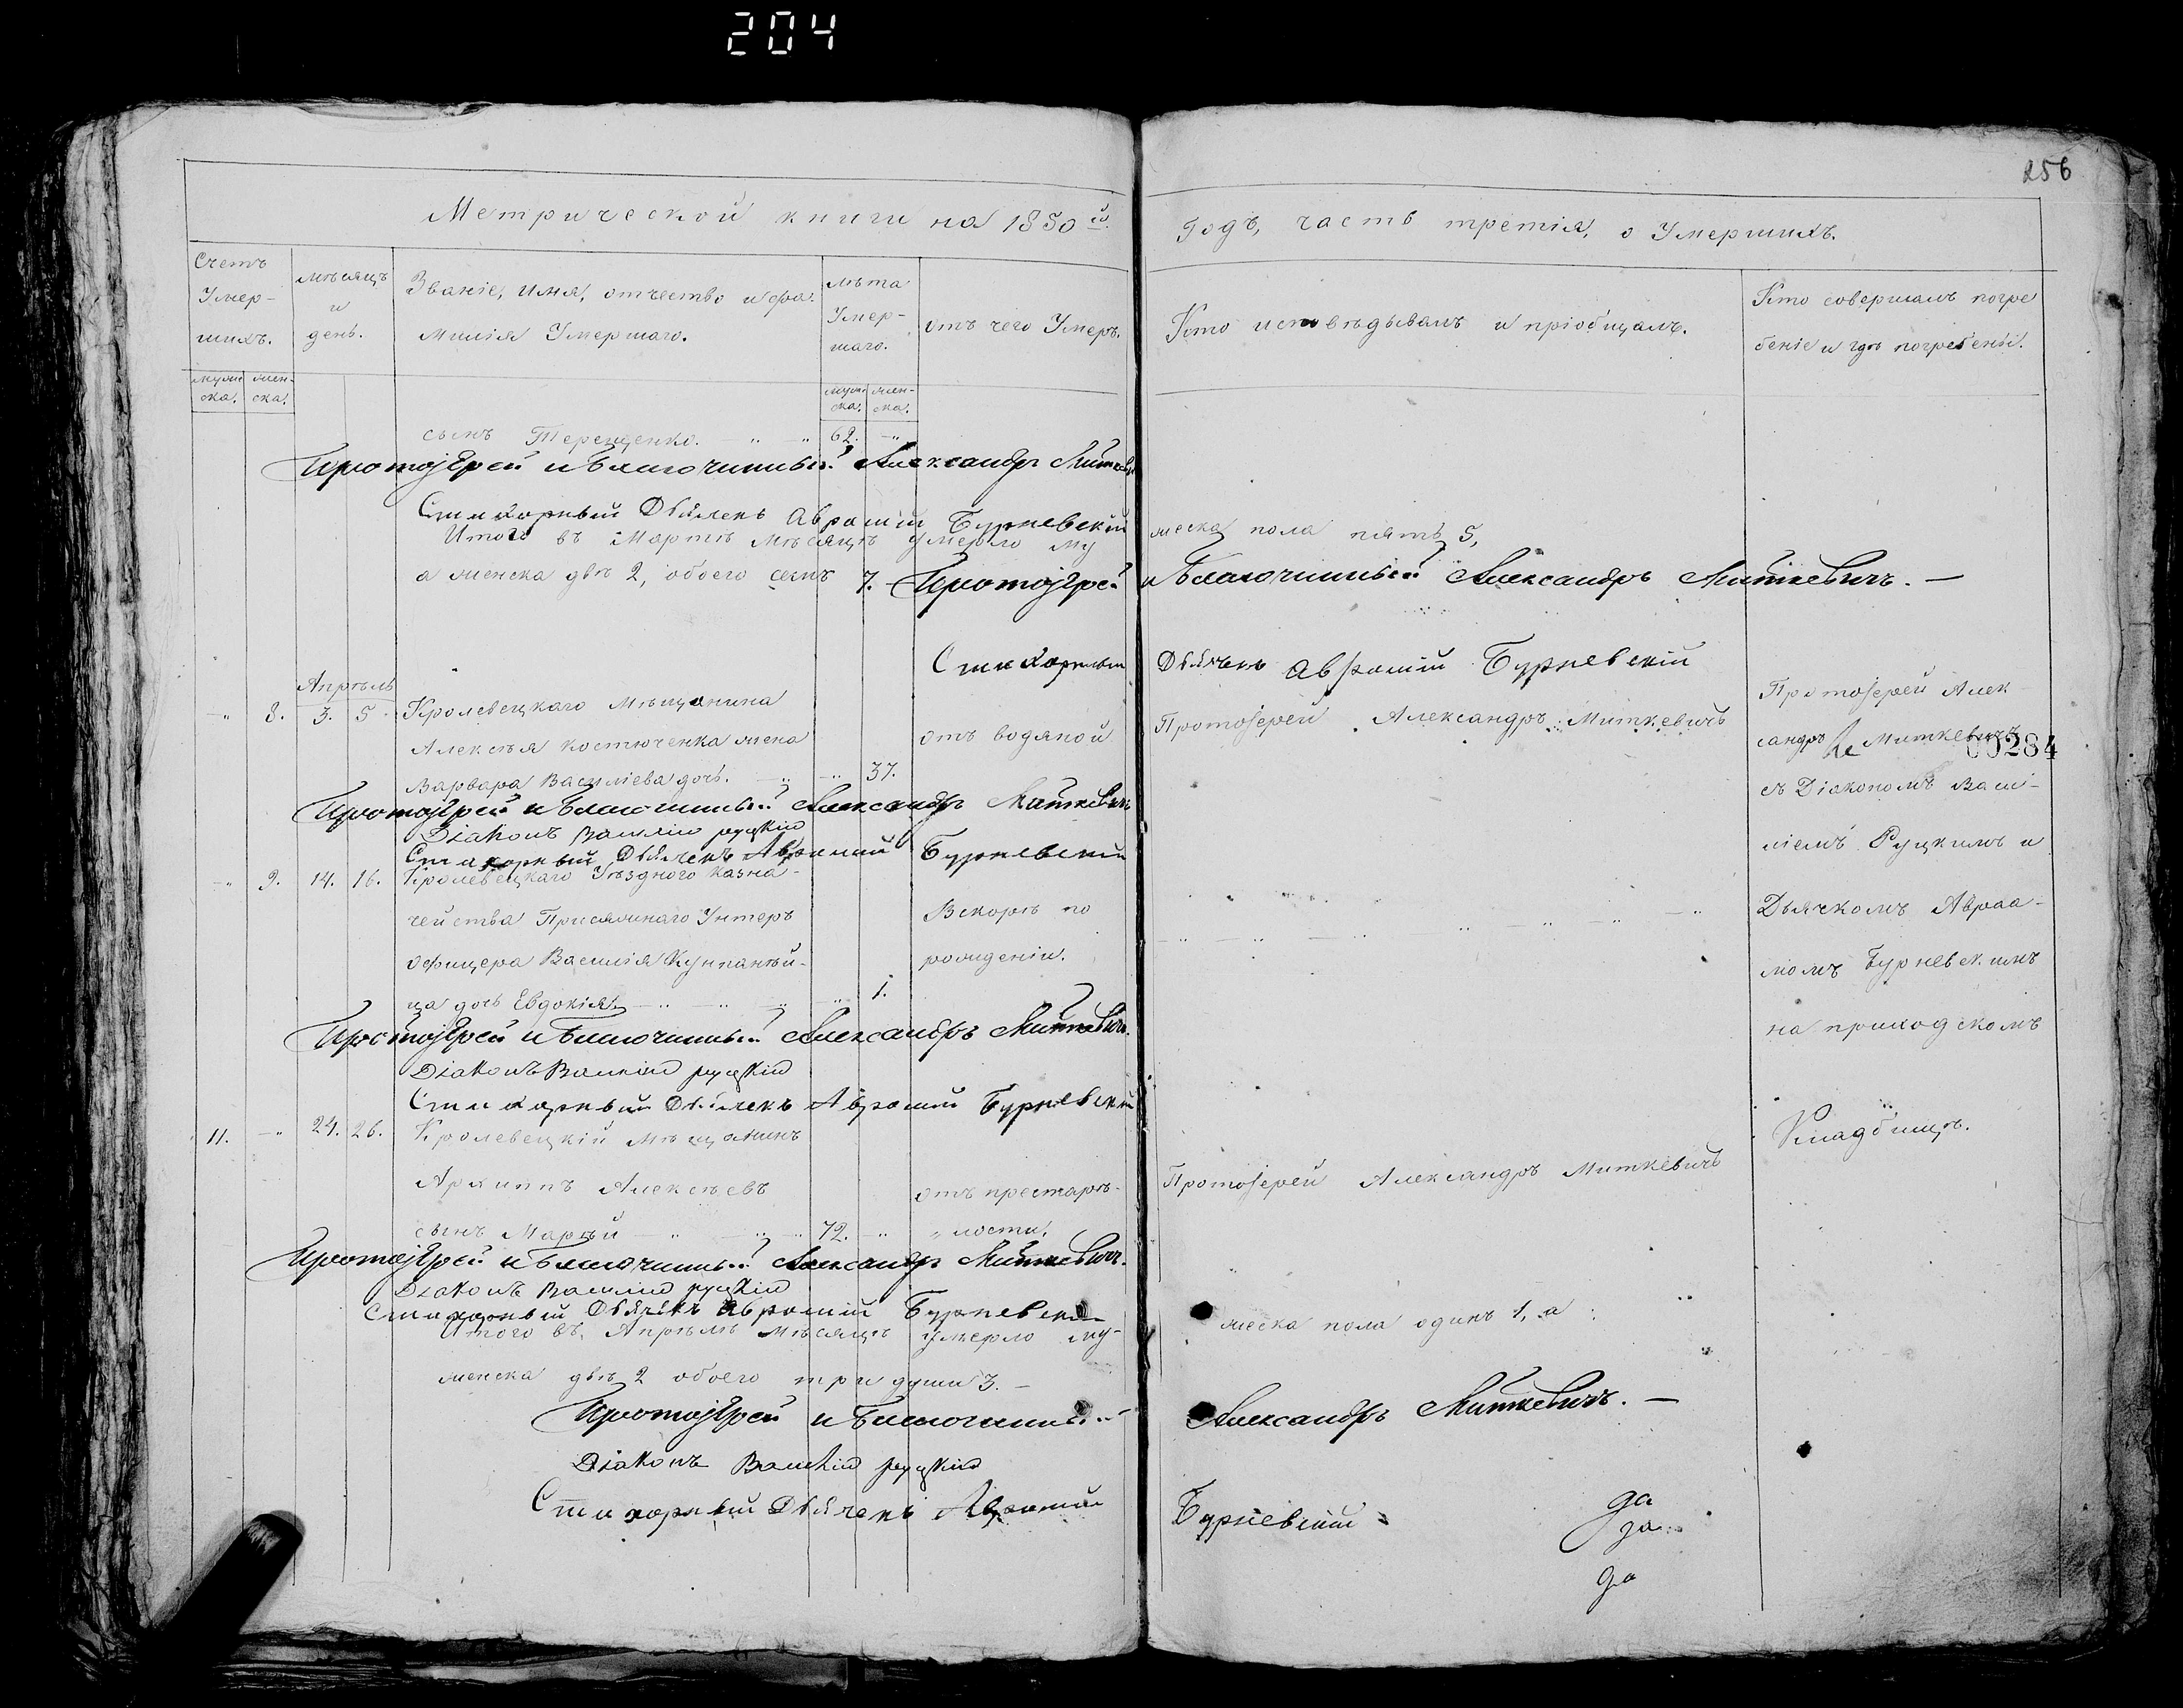 204
256
Метрической книги на 1850й.
Годъ, часть третія, о Умершихъ.
Счетъ Умер-
шихъ.
мѣсяцъ
и
день.
Званіе, имя, отчество и фа-
милія Умершаго.
лѣта
Умер-
шаго.
отъ чего Умеръ.
Кто исповѣдывалъ и пріобщалъ.
Кто совершалъ погре
беніе и гдѣ погребены.
муж-
ска.
жен-
ска.
муж-
ска.
жен-
ска.
сынъ Терещенко. 62.
Протоіерей и Благочинный Александръ Миткевичъ
Стихарный Дьячекъ Аврамій Бурневскій
Итого въ Мартѣ мѣсяцѣ умерло му
жеска пола пять 5,
а женска двѣ 2, обоего семъ 7. Протоіерей и Благочинный Александръ Миткевичъ.
Стихарный Дьячекъ Аврамій Бурневскій
Апрѣль
8. 3. 5. Кролевецкаго Мѣщанина
Алексѣя Костюченка жена
Варвара Василіева дочь. 37.
отъ водяной
Протоіерей Александръ Миткевичъ
Протоіерей Алек
сандръ Миткевичъ
00284
съ Діакономъ Васи-
ліемъ Руцкимъ и
Дьячкомъ Авраа-
момъ Бурневскимъ
на приходскомъ
Кладбищѣ.
Протоіерей и Благочинный Александръ Миткевичъ
Діаконъ Василій Руцкій
Стихарный Дьячекъ Аврамій Бурневскій
9. 14. 16. Кролевецкаго Уѣзднаго Казна-
чейства Присяжнаго Унтеръ
офицера Василія Кумпанѣй-
ца дочь Евдокія. 1.
Вскорѣ по
рожденіи.
Протоіерей и Благочинный Александръ Миткевичъ.
Діаконъ Василій Руцкій
Стихарный Дьячекъ Аврамій Бурневскій
11. 24. 26. Кролевецкій Мѣщанинъ
Архиппъ Алексѣевъ
сынъ Марѣй 72.
отъ престарѣ-
лости.
Протоіерей Александръ Миткевичъ
Протоіерей и Благочинный Александръ Миткевичъ.
Діаконъ Василій Руцкій
Стихарный Дьячекъ Аврамій Бурневскій
Итого въ Апрѣлѣ мѣсяцѣ умерло му-
жеска пола одинъ 1, а
женска двѣ 2 обоего три души 3.
Протоіерей и Благочинный Александръ Миткевичъ.
Діаконъ Василій Руцкій
Стихарный Дьячекъ Аврамій Бурневскій